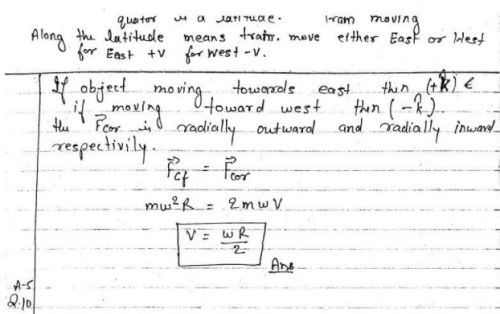 quator is a latitude. tram moving
Along the latitude means tratn. move either East or West
for East +V for West -V.
If object moving towards east then (+k̂) &
if moving toward west then (-k̂).
the F⃗cor is radially outward and radially inward
respectivily.
F⃗cf = F⃗cor
mω²R = 2mωV
V = ωR/2
Ans
A-5
Q.10